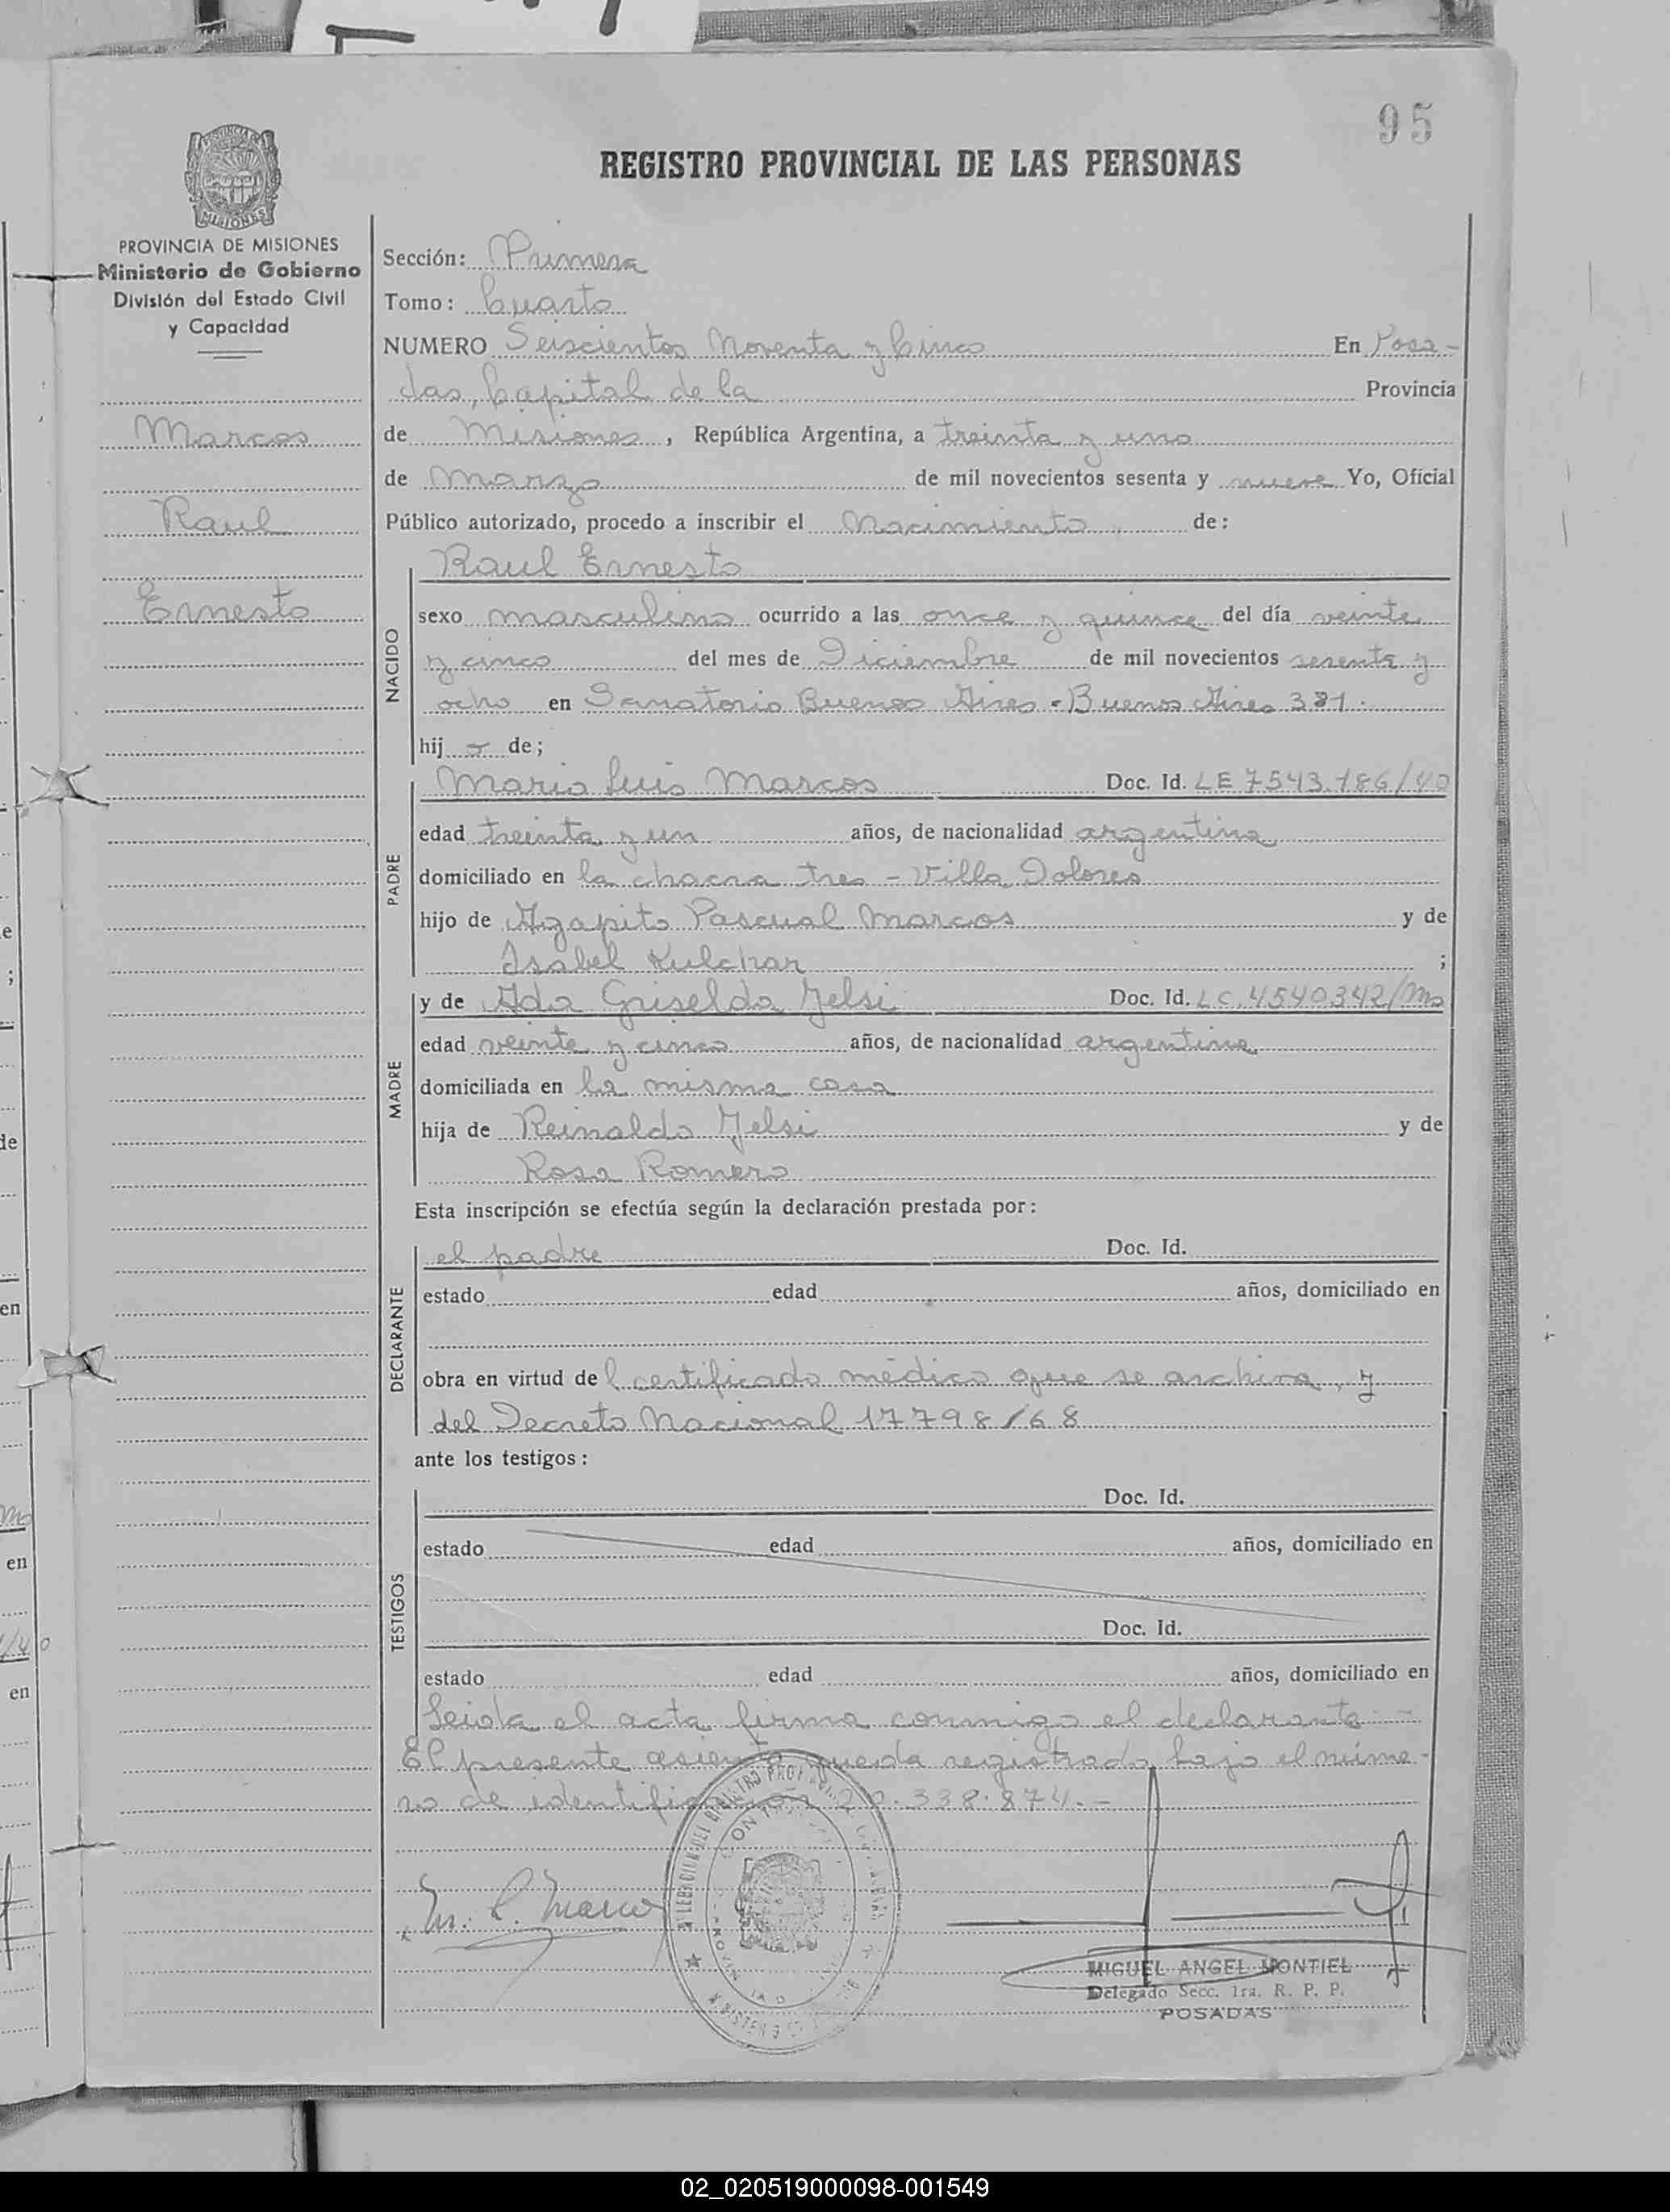 95
REGISTRO PROVINCIAL DE LAS PERSONAS
PROVINCIA DE MISIONES
Ministerio de Gobierno
División del Estado Civil
y Capacidad
Marcos
Raul
Ernesto
Sección: Primera
Tomo: Cuarto
NUMERO Seiscientos Noventa y Cinco En Posa-
das, Capital de la Provincia
de Misiones, República Argentina, a treinta y uno
de Marzo de mil novecientos sesenta y nueve Yo, Oficial
Público autorizado, procedo a inscribir el Nacimiento de:
NACIDO
Raul Ernesto
sexo masculino ocurrido a las once y quince del día veinte
y cinco del mes de Diciembre de mil novecientos sesenta y
ocho en Sanatorio Buenos Aires - Buenos Aires 381.
hij o de;
PADRE
Mario Luis Marcos Doc. Id. LE 7543.186/40
edad treinta y un años, de nacionalidad argentina
domiciliado en la chacra tres - Villa Dolores
hijo de Agapito Pascual Marcos y de
Isabel Kulchar ;
MADRE
y de Ada Griselda Jelsi Doc. Id. L.C. 4540342/Ms
edad veinte y cinco años, de nacionalidad argentina
domiciliada en la misma casa
hija de Reinaldo Jelsi y de
Rosa Romero
Esta inscripción se efectúa según la declaración prestada por:
DECLARANTE
el padre Doc. Id.
estado edad años, domiciliado en
obra en virtud del certificado médico que se archiva, y
del Decreto Nacional 17798/68
ante los testigos:
TESTIGOS
Doc. Id.
estado edad años, domiciliado en
Doc. Id.
estado edad años, domiciliado en
Leida el acta firma conmigo el declarante. -
El presente asiento queda registrado bajo el núme-
ro de identificación 20.338.874. -
M. L. Marcos
MIGUEL ANGEL MONTIEL
Delegado Secc. 1ra. R. P. P.
POSADAS
02_020519000098-001549